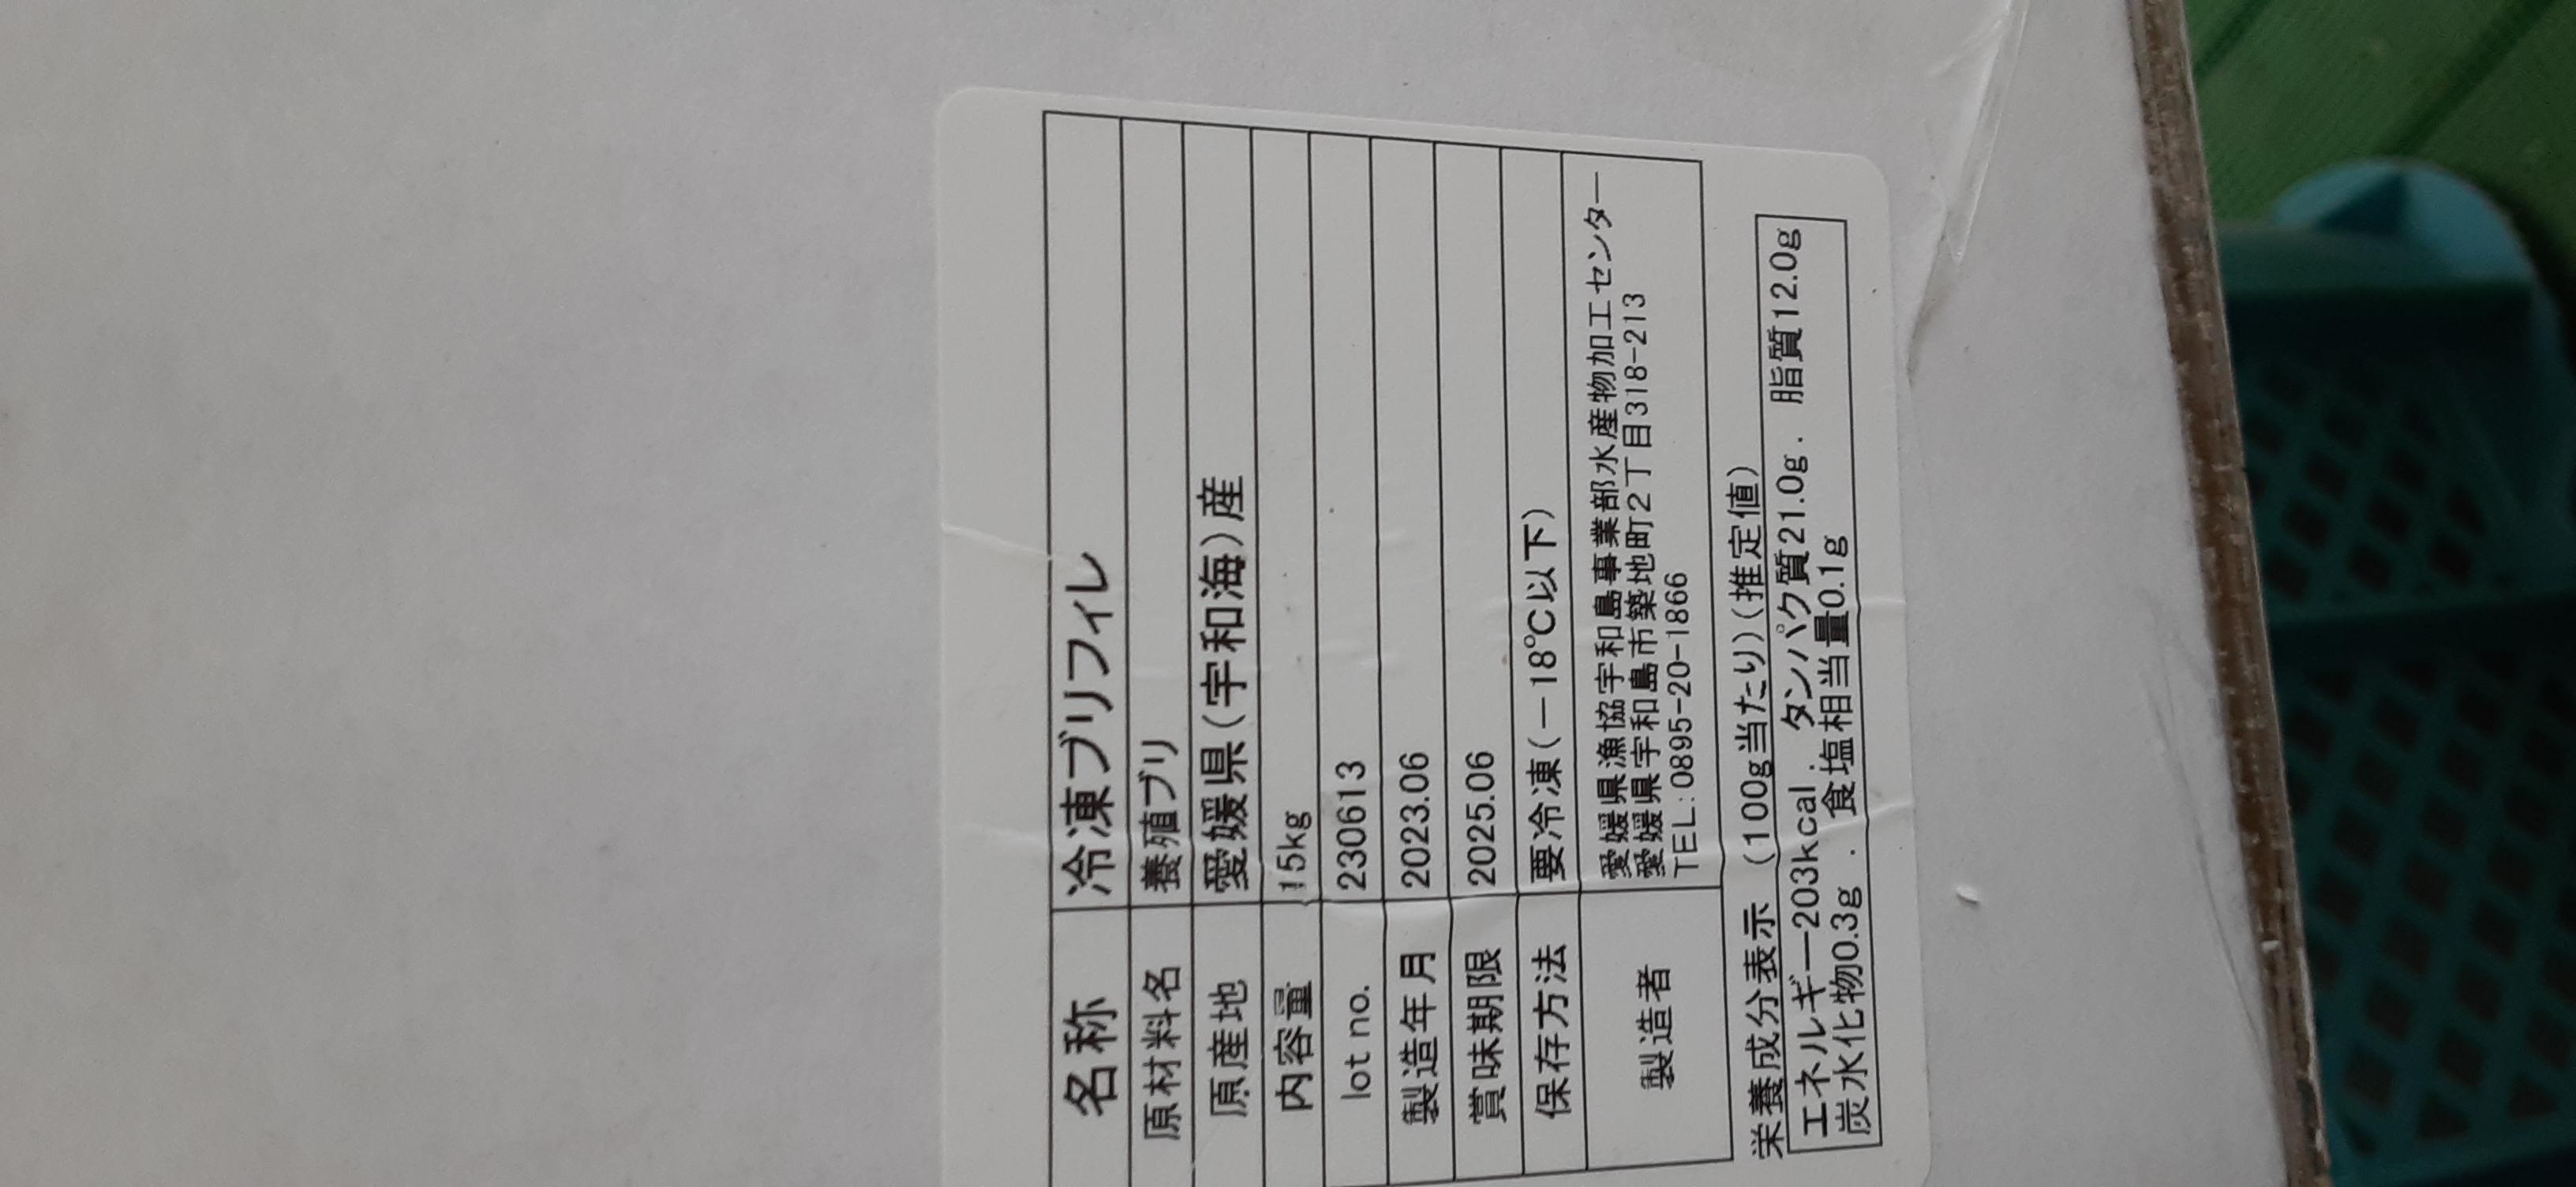 名称 冷凍ブリフィレ
原材料名 養殖ブリ
原産地 愛媛県(宇和海)産
内容量 15kg
lot no. 230613
製造年月 2023.06
賞味期限 2025.06
保存方法 要冷凍(－18℃以下)
製造者 愛媛県漁協宇和島事業部水産物加工センター
愛媛県宇和島市築地町2丁目318-213
TEL:0895-20-1866
栄養成分表示 (100g当たり)(推定値)
エネルギー203kcal. タンパク質21.0g. 脂質12.0g
炭水化物0.3g. 食塩相当量0.1g